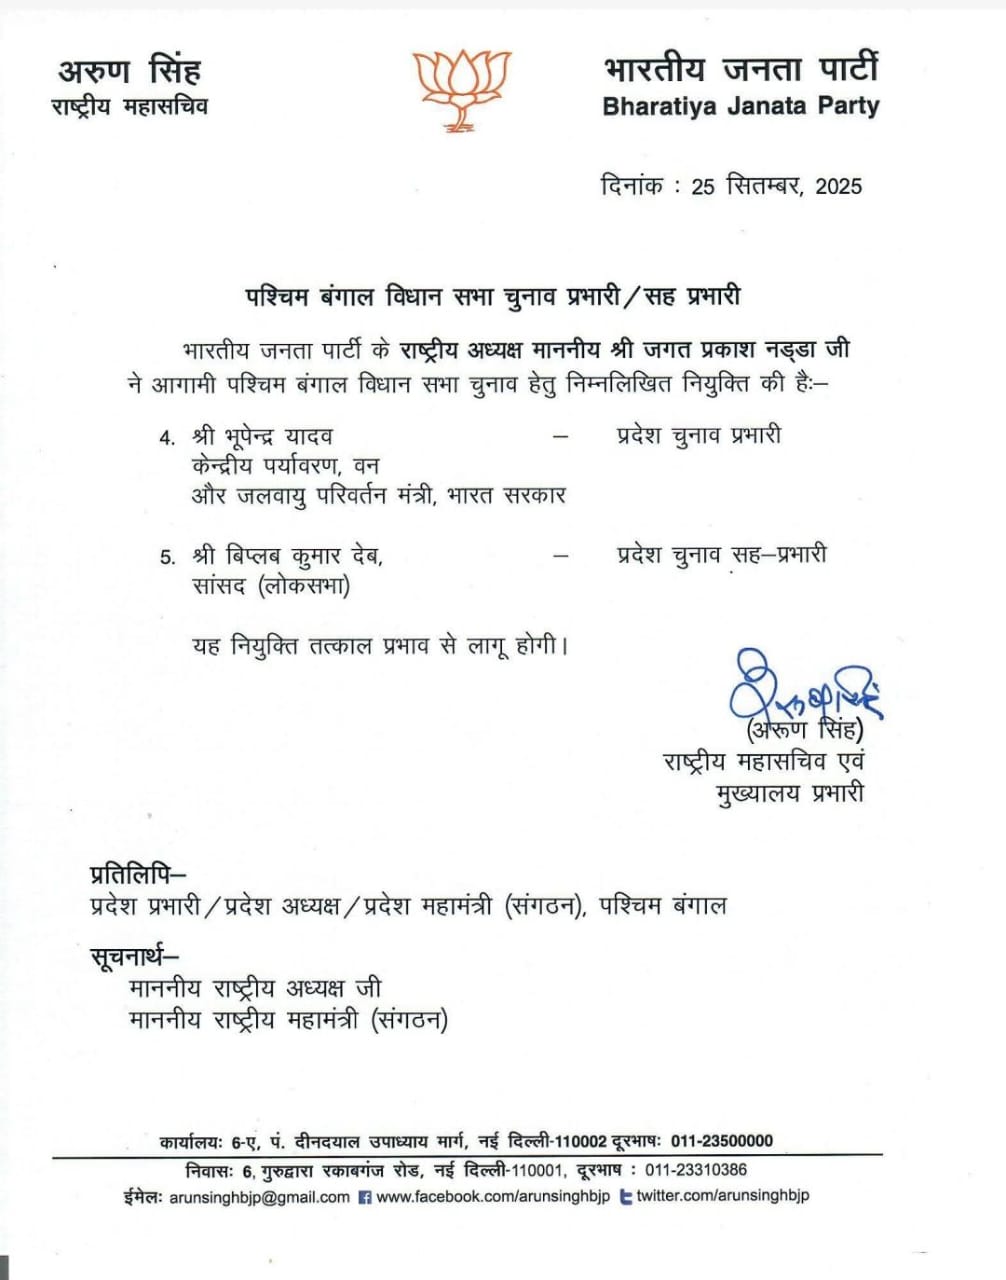 अरुण सिंह
राष्ट्रीय महासचिव
भारतीय जनता पार्टी
Bharatiya Janata Party
दिनांक : 25 सितम्बर, 2025
पश्चिम बंगाल विधान सभा चुनाव प्रभारी/सह प्रभारी
भारतीय जनता पार्टी के राष्ट्रीय अध्यक्ष माननीय श्री जगत प्रकाश नड्डा जी
ने आगामी पश्चिम बंगाल विधान सभा चुनाव हेतु निम्नलिखित नियुक्ति की है:–
4. श्री भूपेन्द्र यादव – प्रदेश चुनाव प्रभारी
केन्द्रीय पर्यावरण, वन
और जलवायु परिवर्तन मंत्री, भारत सरकार
5. श्री बिप्लब कुमार देब, – प्रदेश चुनाव सह–प्रभारी
सांसद (लोकसभा)
यह नियुक्ति तत्काल प्रभाव से लागू होगी।
अरुण सिंह
(अरूण सिंह)
राष्ट्रीय महासचिव एवं
मुख्यालय प्रभारी
प्रतिलिपि–
प्रदेश प्रभारी/प्रदेश अध्यक्ष/प्रदेश महामंत्री (संगठन), पश्चिम बंगाल
सूचनार्थ–
माननीय राष्ट्रीय अध्यक्ष जी
माननीय राष्ट्रीय महामंत्री (संगठन)
कार्यालयः 6-ए, पं. दीनदयाल उपाध्याय मार्ग, नई दिल्ली-110002 दूरभाषः 011-23500000
निवासः 6, गुरुद्वारा रकाबगंज रोड, नई दिल्ली-110001, दूरभाष : 011-23310386
ईमेलः arunsinghbjp@gmail.com www.facebook.com/arunsinghbjp twitter.com/arunsinghbjp